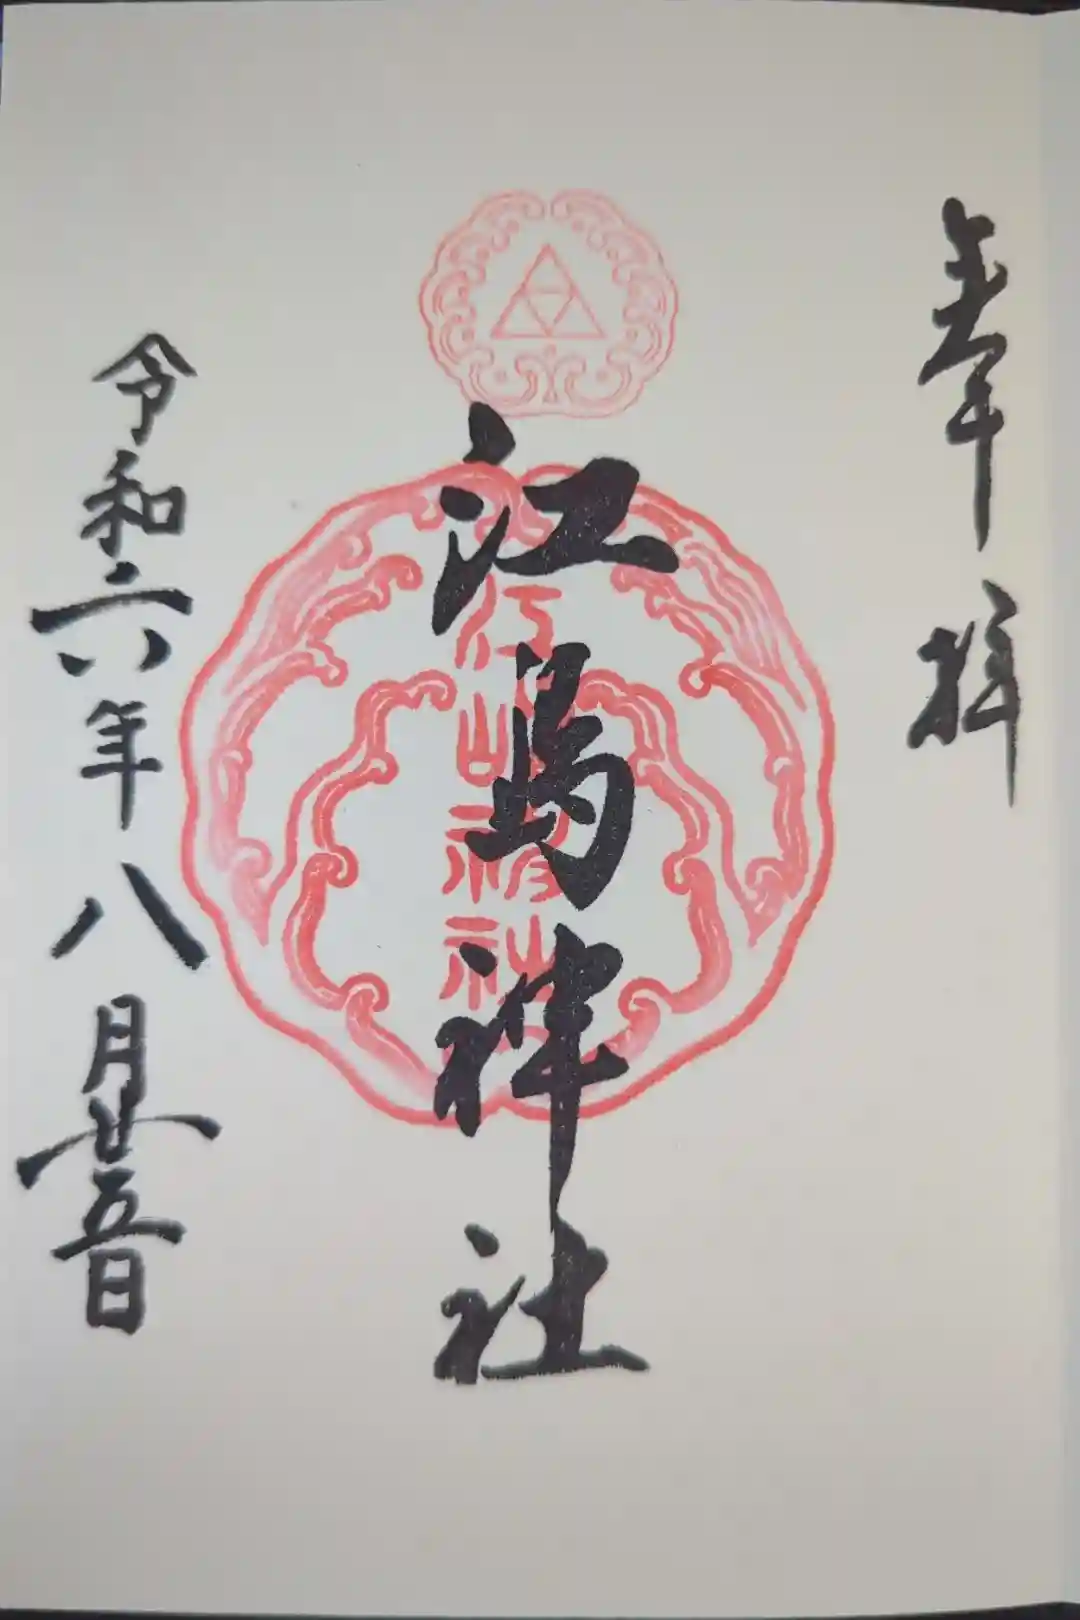 奉拝
江島神社
江島神社
令和六年八月廿五日